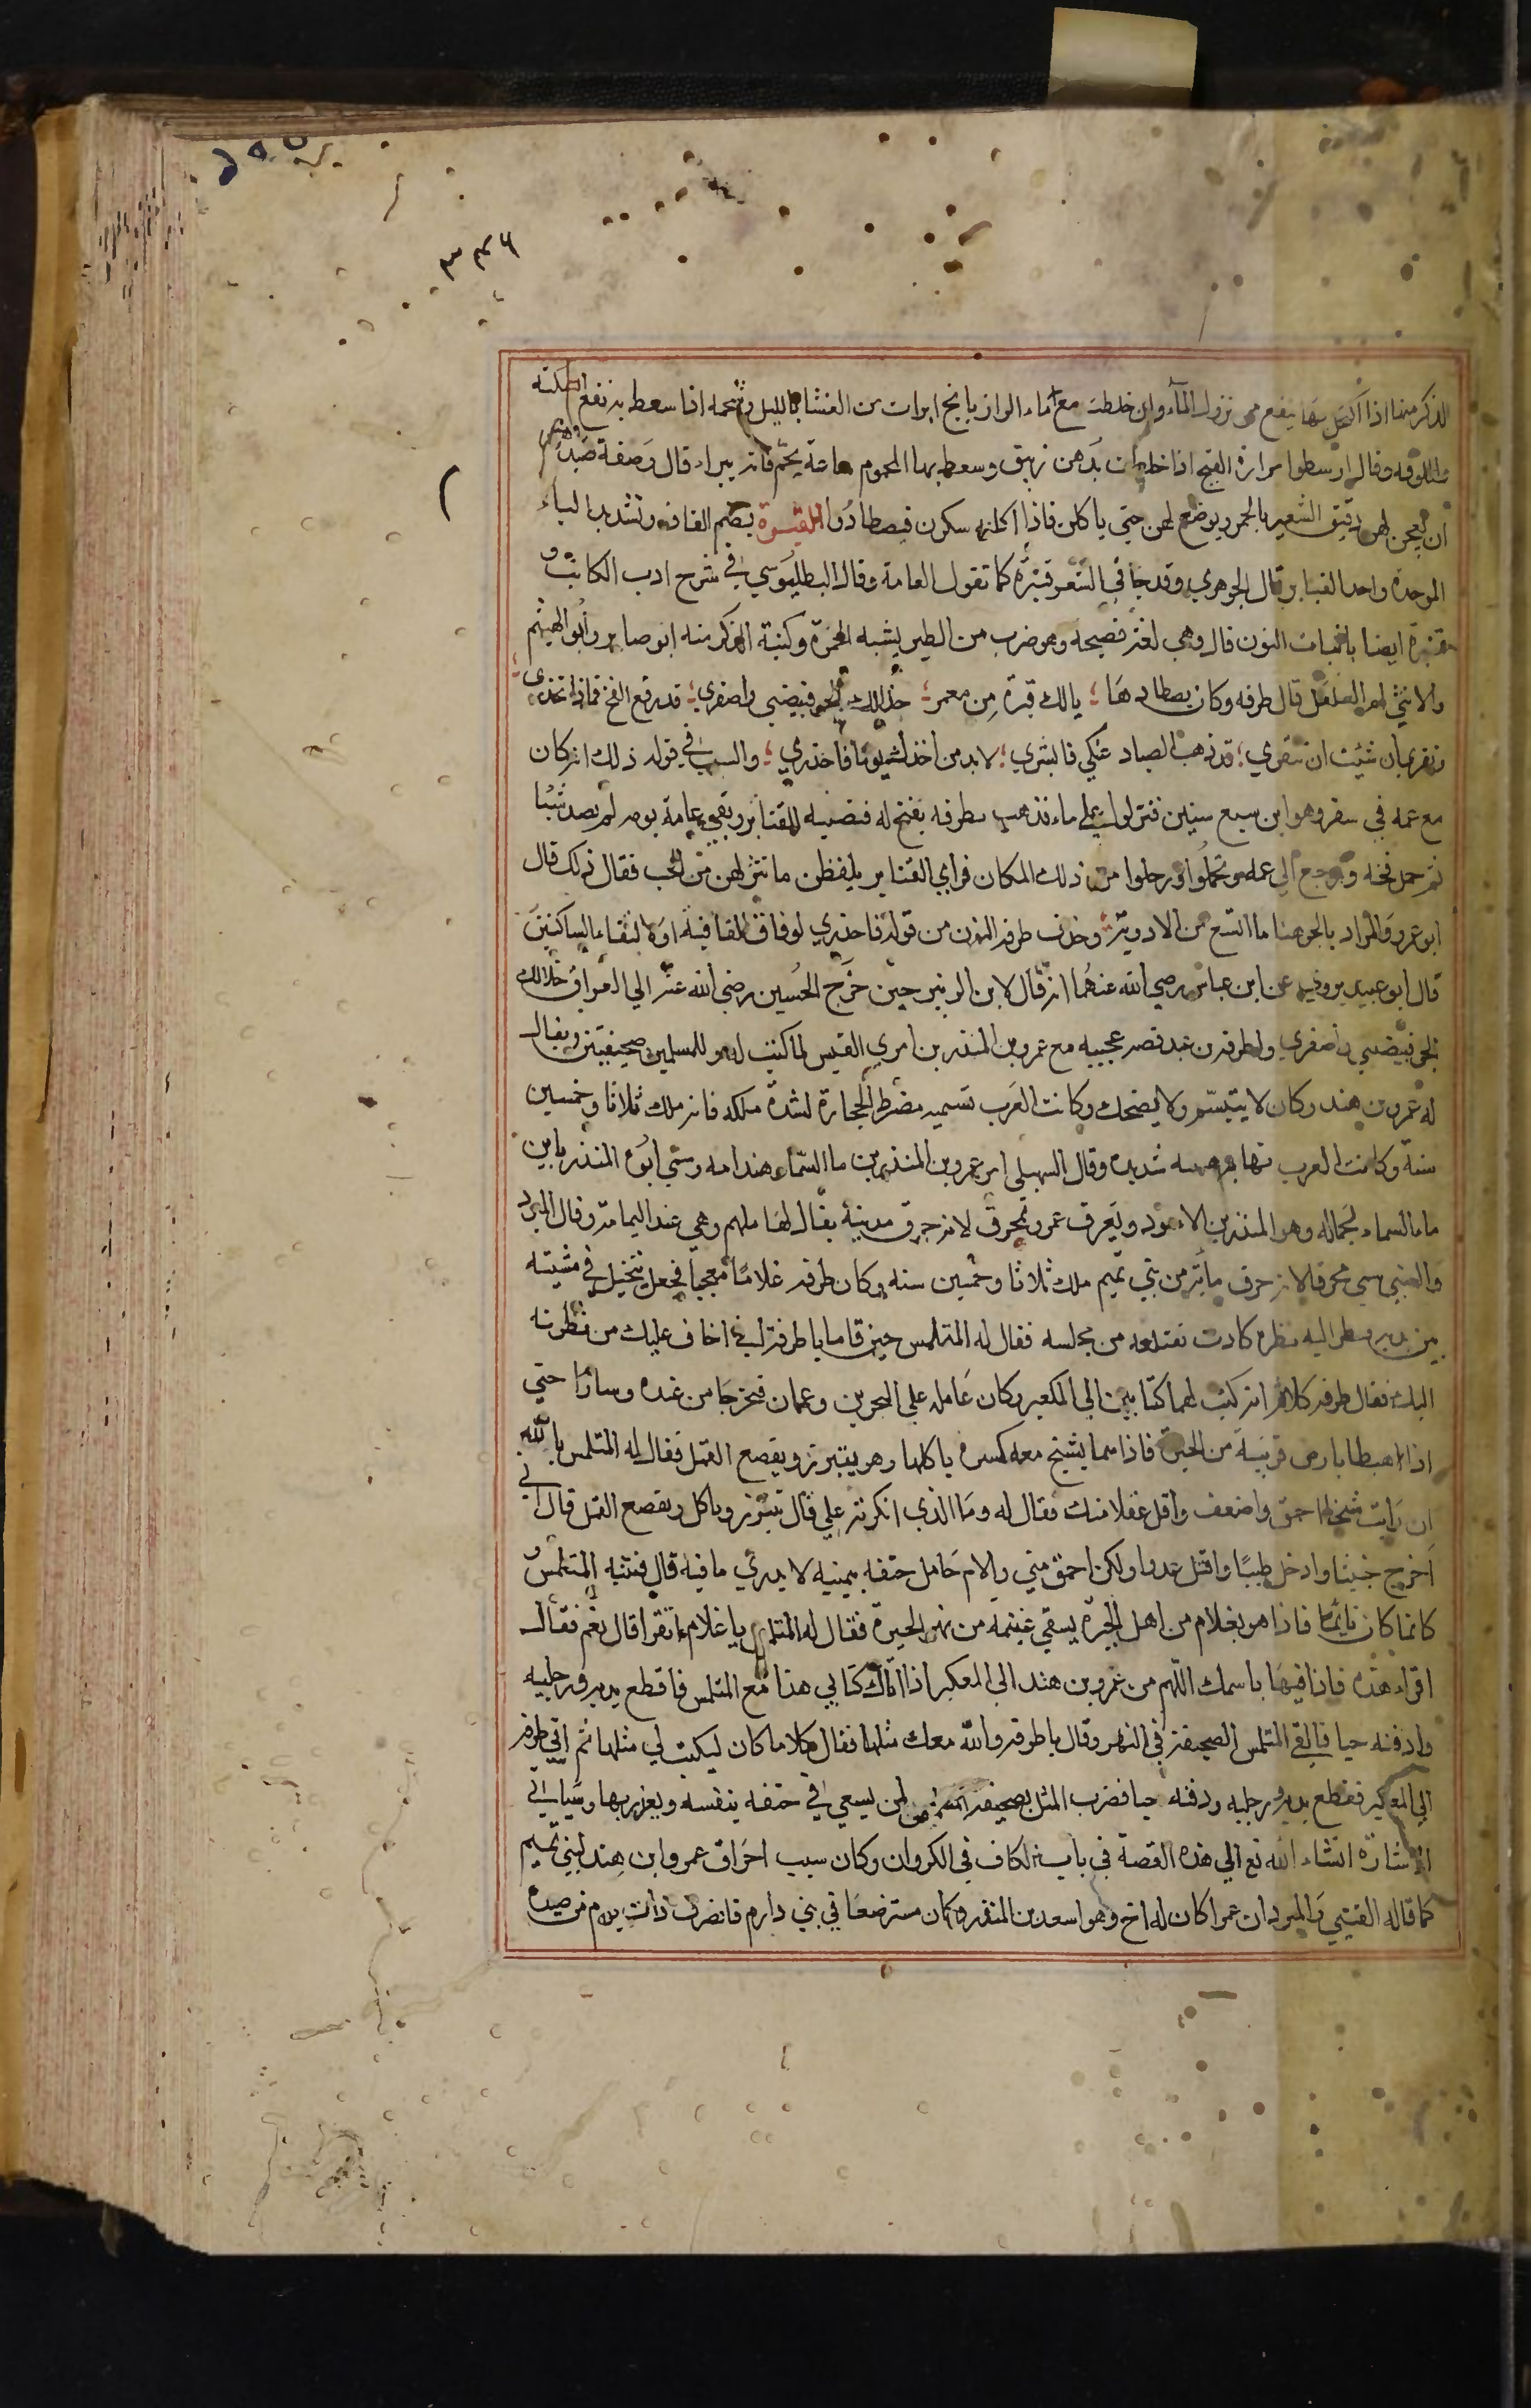 ٣٣٦
الذكر منها اذا اكتحل بها ينفع من نزول الماء وان خلطت مع ماء الرازيانج ابرات من الغشا بالليل وشحمه اذا سعط به نفع السكتة
واللوقه وقال ارسطوا مرارة القبج اذا خلطت بدهن زيبق وسعط بها المحموم ساعة يحم فانه يبراء قال وصفة صيد
ان يعجن لهن دقيق الشعير بالخمر ويوضع لهن حتي ياكلن فاذا اكلنه سكرن فيصطادوا القبرة بضم القاف وتشديد الباء
الموحدة واحد القبابر قال الجوهري وقد جا في الشعر قنبرة كما تقول العامة وقال البطليوسي في شرح ادب الكاتب و
قنبرة ايضا باثبات النون قال وهي لغة فصيحة وهو ضرب من الطير يشبه الحمرة وكنية الذكر منه ابو صابر وابو الهيثم
والانثي ام العلعل قال طرفه وكان يصطادها ؛ يا لك قبرة من معمر ؛ خلا لك الجو فبيضي واصفري ؛ قد رفع الفخ فماذا تحذري ؛
ونقري ان شئت ان تنقري ؛ قد ذهب الصياد عنك فابشري ؛ لا بد من اخذك يوما فاحذري ؛ والسبب في قوله ذلك انه كان
مع عمه في سفر وهو ابن سبع سنين فنزلوا علي ماء فذهب طرفه بفخ له فنصبه للقنابر وبقي عامة يومه لم يصد شيئا
ثم حمل فخه ورجع الي عمه وتحملوا ورحلوا من ذلك المكان فراي القنابر يلقطن ما نثر لهن من الحب فقال ذلك قال
ابو عمرو والمراد بالجو هنا ما اتسع من الاودية وحذف طرفه النون من قوله فاحذري لوفاق القافية او لالتقاء الساكنين
قال ابو عبيد يروي عن ابن عباس رضي الله عنهما انه قال لابن الزبير حين خرج الحسين رضي الله عنه الي العراق خلا لك
الجو فبيضي واصفري ولطرفه بن عبد قصه عجيبه مع عمرو بن المنذر بن امري القيس لما كتب له وللمتلمس صحيفتين ويقال
له عمرو بن هند وكان لا يتبسم ولا يضحك وكانت العرب تسميه مضرط الحجارة لشدة ملكه فانه ملك ثلاثا وخمسين
سنة وكانت العرب تهابه هيبه شديده وقال السهيلي انه عمرو بن المنذر بن ما السماء وهند امه وسمي ابوه المنذر بابن
ماء السماء لجماله وهو المنذر بن الاسود ويعرف عمرو بمحرق لانه حرق مدينة يقال لها ملهم وهي عند اليمامة وقال المبرد
والعتبي سمي محرقا لانه حرق مائة من بني تميم ملك ثلاثا وخمسين سنه وكان طرفه غلاما معجبا فجعل يتخيل في مشيته
بين يديه فنظر اليه نظره كادت تقتلعه من مجلسه فقال له المتلمس حين قاما يا طرفة اني اخاف عليك من نظرته
اليك فقال طرفه كلا ثم انه كتب لهما كتابين الي المكعبر وكان عامله علي البحرين وعمان فخرجا من عنده وسارا حتي
اذا هبطا بارض قريبة من الحيرة فاذا هما بشيخ معه كسرة ياكلها وهو يتبرز ويقصع القمل فقال له المتلمس بالله
ان رايت شيخا احمق واضعف واقل عقلا منك فقال له وما الذي انكرته علي قال تتبرز وتاكل وتقصع القمل قال اني
اخرج خبيثا وادخل طيبا واقتل عدوا ولكن احمق مني والام حامل حتفه بيمينه لا يدري ما فيه قال فتنبه المتلمس و
كانما كان نائما فاذا هو بغلام من اهل الحيرة يسقي غنيمه من نهر الحيرة فقال له المتلمس يا غلام اتقرا قال نعم فقال
اقراء هذه فاذا فيها باسمك اللهم من عمرو بن هند الي المعكبر اذا اتاك كتابي هذا مع المتلمس فاقطع يديه ورجليه
وادفنه حيا فالقي المتلمس الصحيفة في النهر وقال يا طرفه والله معك مثلها فقال كلا ما كان ليكتب لي مثلها ثم اتي طرفه
الي المعكبر فقطع يديه ورجليه ودفنه حيا فضرب المثل بصحيفة المتلمس لمن يسعي في حتفه بنفسه ويغرر بها وسياتي
الاشارة انشاء الله تع الي هذه القصة في باب الكاف في الكروان وكان سبب احراق عمرو ابن هند لبني تميم
كما قاله القتيبي والمبرد ان عمرا كان له اخ وهو اسعد بن المنذر وكان مسترضعا في بني دارم فانصرف ذات يوم من صيده